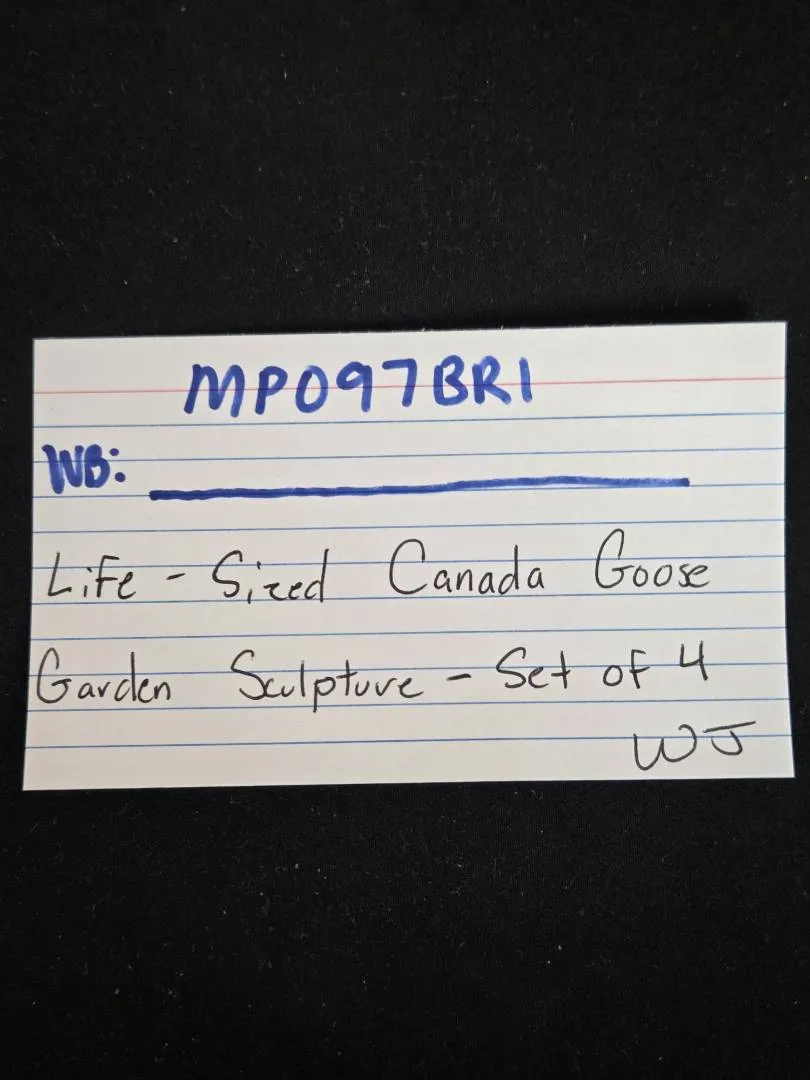 MP097BR1
WB:
Life - Sized Canada Goose
Garden Sculpture - Set of 4
WJ